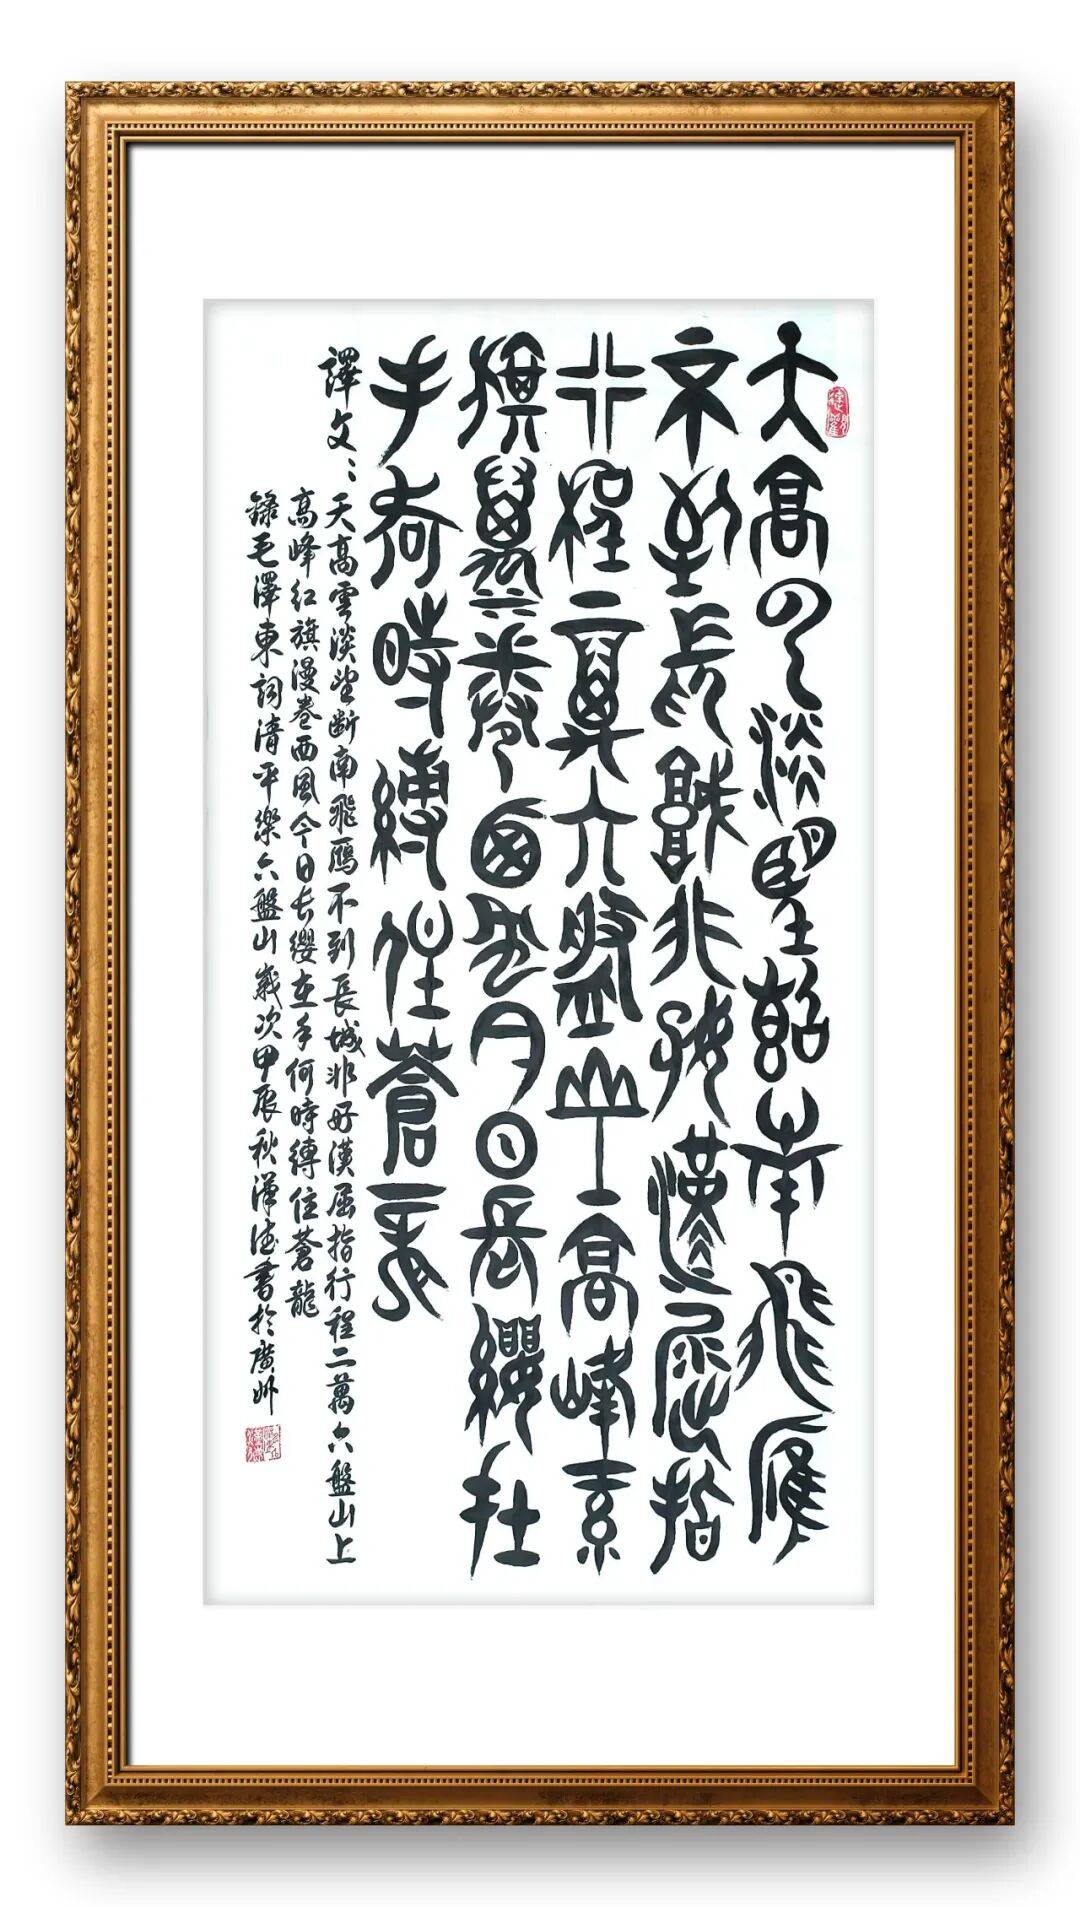 天高雲淡望斷南飛雁
不到長城非好漢屈指
行程二萬六盤山上高峰紅
旗漫卷西風今日長纓在
手何時縛住蒼龍
譯文：天高雲淡望斷南飛雁不到長城非好漢屈指行程二萬六盤山上
高峰紅旗漫卷西風今日長纓在手何時縛住蒼龍
錄毛澤東詞清平樂六盤山歲次甲辰秋漢德書於廣州